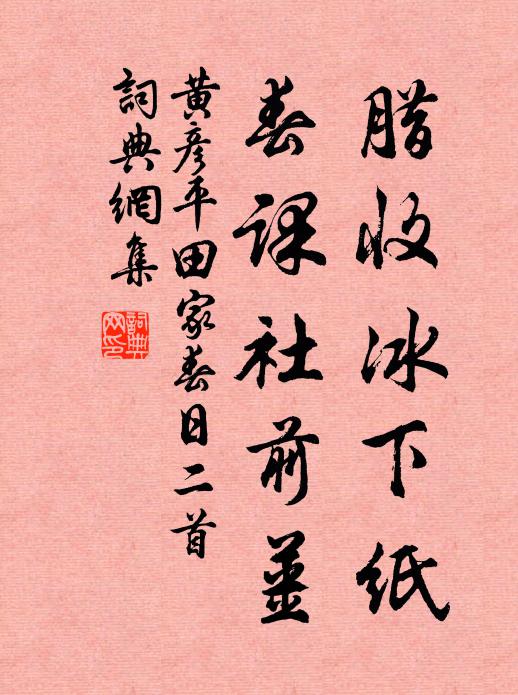 腊收冰下纸
春课社前薑
黄彦平田家春日二首
詞典網集
詞典網印